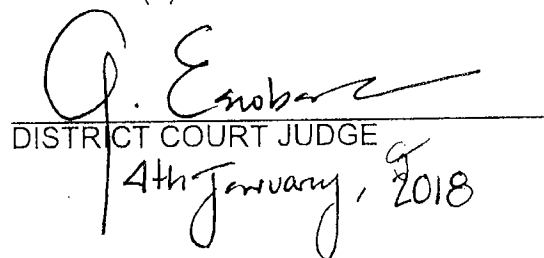 G. Escobar
DISTRICT COURT JUDGE
4th January, 2018